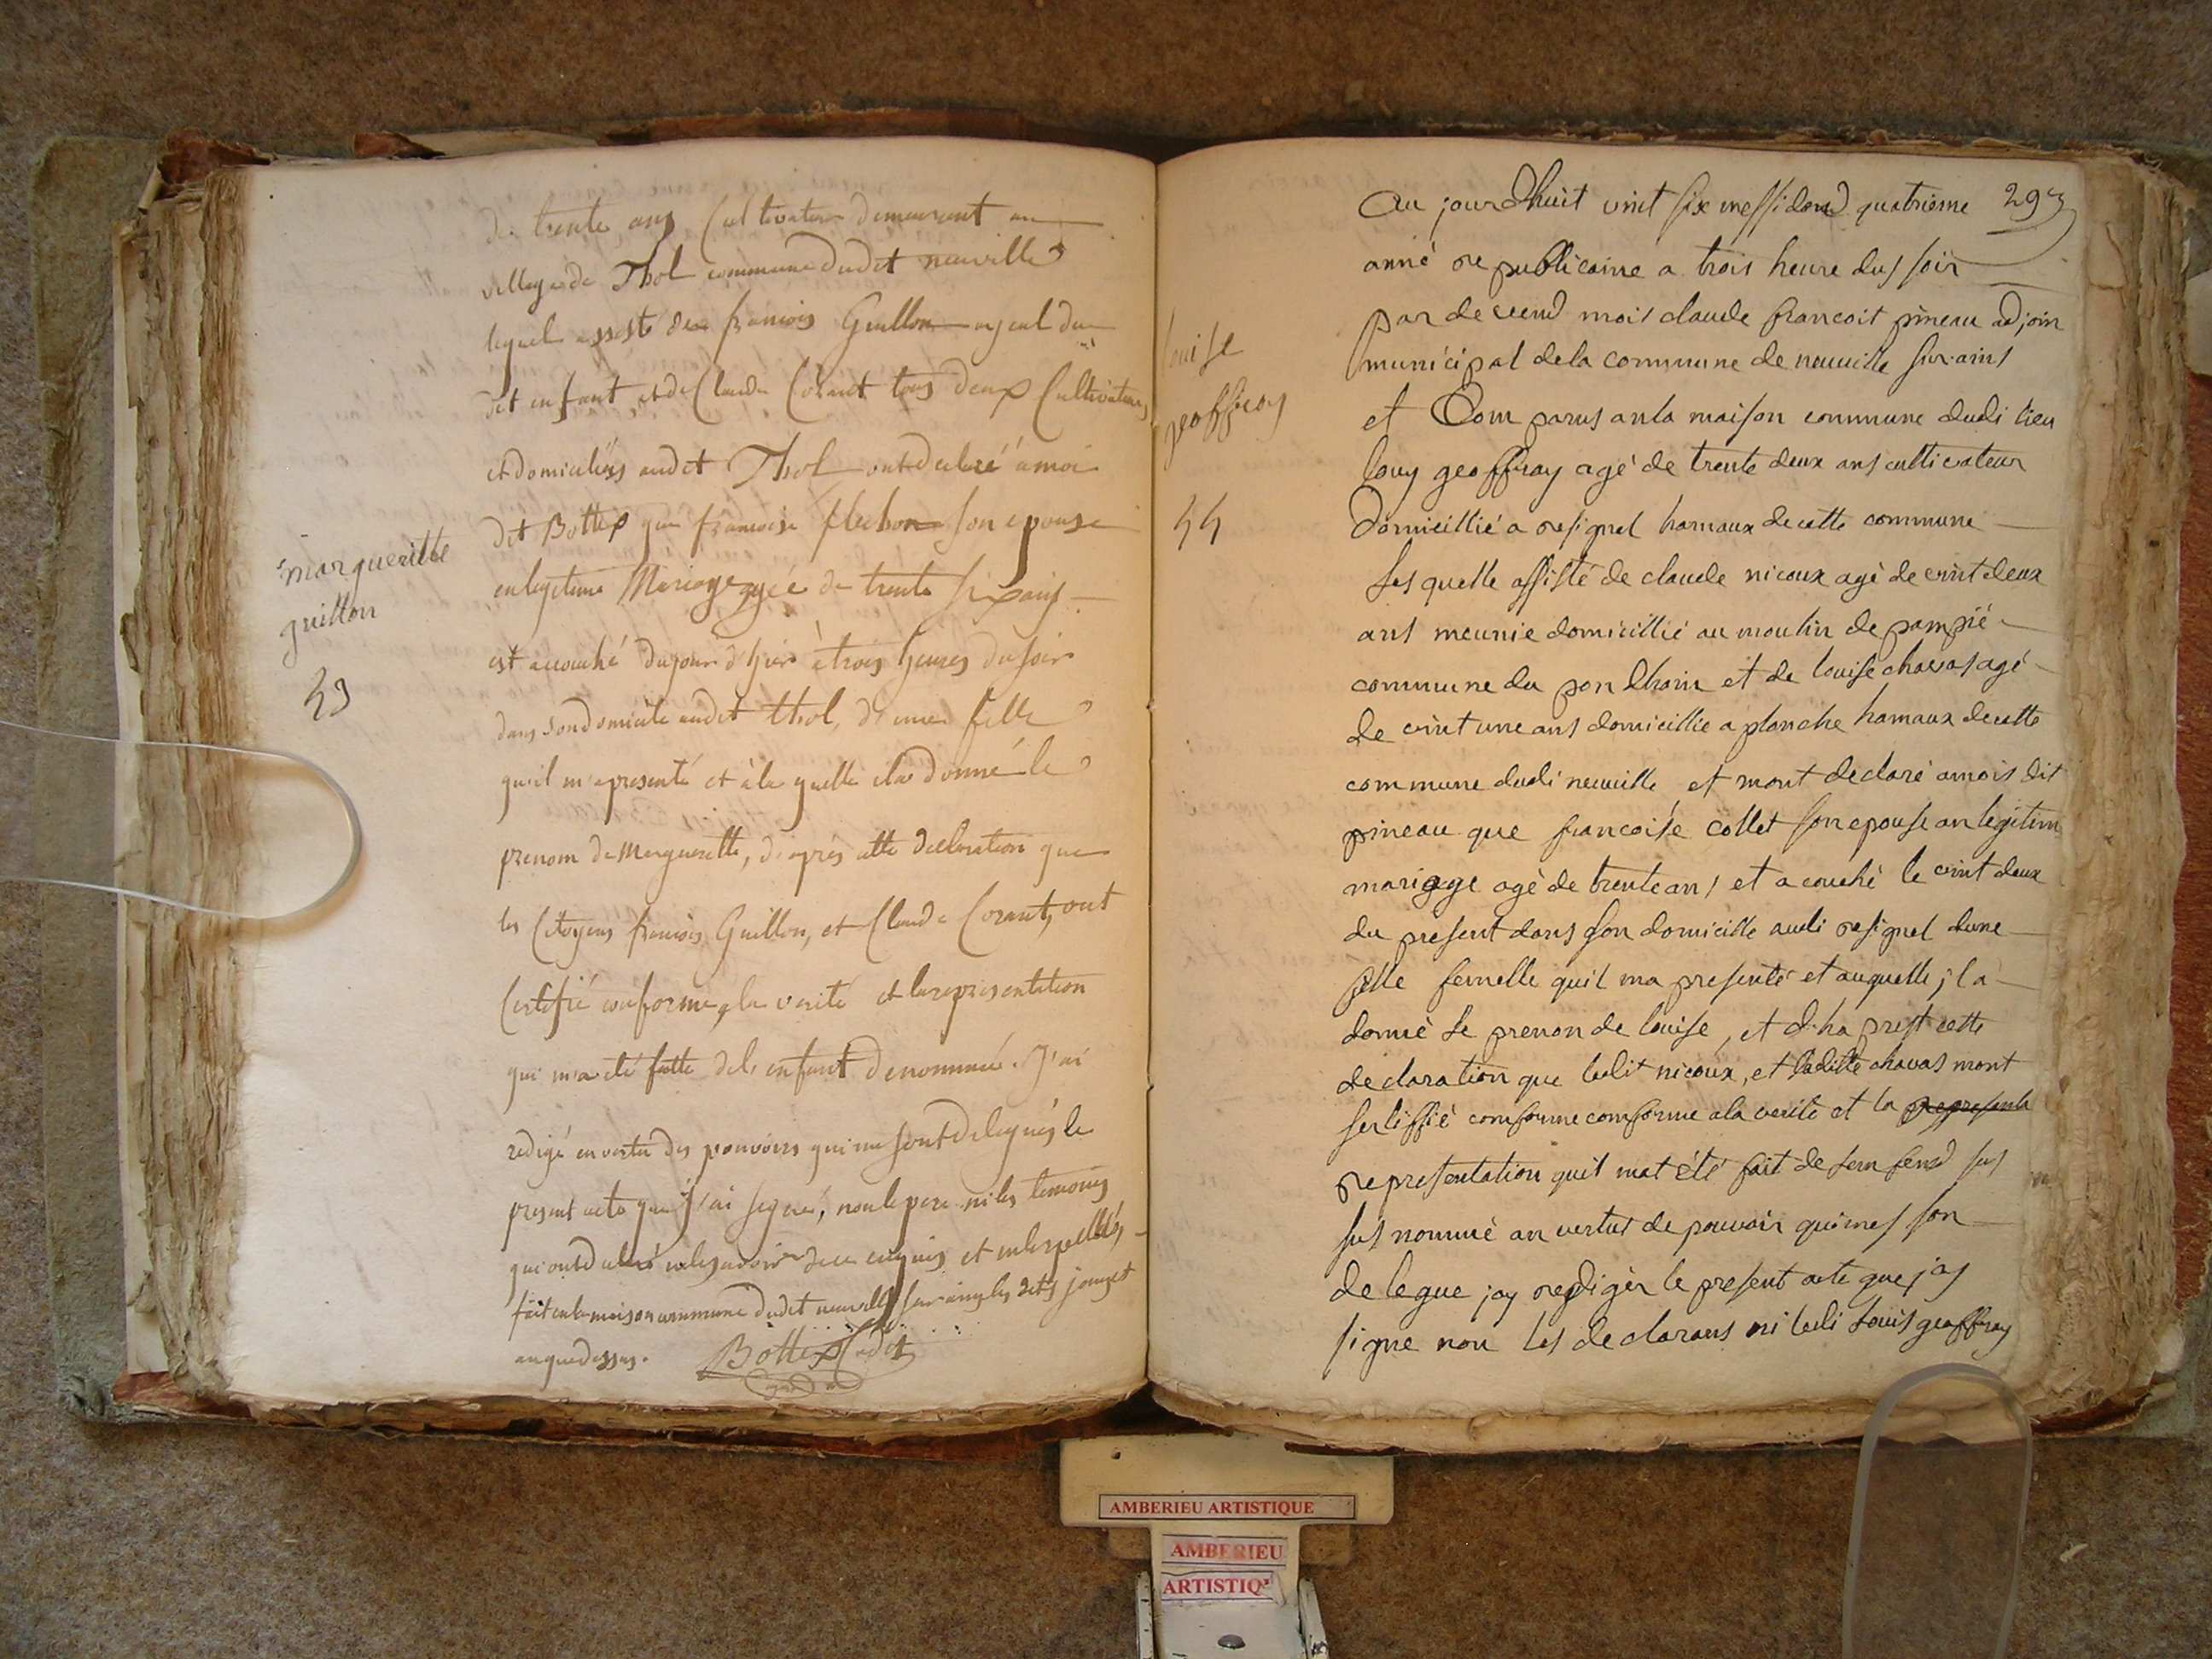 de trente ans Cultivateur demeurant au
village de Thol commune dudit neuville
lequel assisté de francois Guillon ayeul du
dit enfant et de Claude Corant tous deux Cultivateurs
et domiciliés audit Thol ont declaré à moi
dit Bottex que francoise flechon son epouse
en legitime Mariage agée de trente six ans
est accouché du jour d'hier à trois heures du soir
dans son domicile audit thol, d'une fille
qu'il m'a presenté et à la quelle il a donné le
prenom de Marguerette, d'après cette declaration que
les Citoyens francois Guillon, et Claude Corant, ont
Certifié conforme a la verité et la representation
qui m'a été faitte de l'enfant denommé. J'ai
redigé en vertu des pouvoirs qui me sont delegués le
present acte que j'ai signé, non le pere ni les temoins
qui ont declaré ne le savoir de ce enquis et interpellés
fait en la maison commune dudit neuville sur ain les dits jour et
an que dessus. Bottex Cadet
margueritte
guillon
43
293
Au jourdhuit vint six messidord quatrieme
anné republicaine a trois heure dus soir
par devend mois claude francoit pineau adjoin
municipal de la commune de neuville sur ains
et Com parus an la maison commune dudi lieu
louy geoffray agé de trente deux ans cultivateur
domicillié a resignel hamaux de cette commune
les quelle assisté de claude nicoux agè de vint deux
ans meunie domicillié au moulin de pampié
commune du pon dhain et de louise chavas agé
de vint une ans domicillie a planche hamaux de cette
commune dudi neuville et mont declaré a mois dit
pineau que francoise collet son epouse an legitim
mariage agè de trente ans et a couché le vint deux
du present dans son domicille audi resignel dune
fille femelle quil ma presenté et auquelle jl a
donnè le prenon de louise, et dha prest cette
declaration que ledit nicoux, et laditte chavas mont
sertiffié conforme conforme a la verité et la represente
representation quil mat été fait de lenfend sus
sus nommè an vertus de pouvoir quimes son
delegue jay redigèr le present acte que jay
signe non les declarans ni ledi Louis geoffray
louise
geoffray
44
AMBERIEU ARTISTIQUE
AMBERIEU
ARTISTIQ